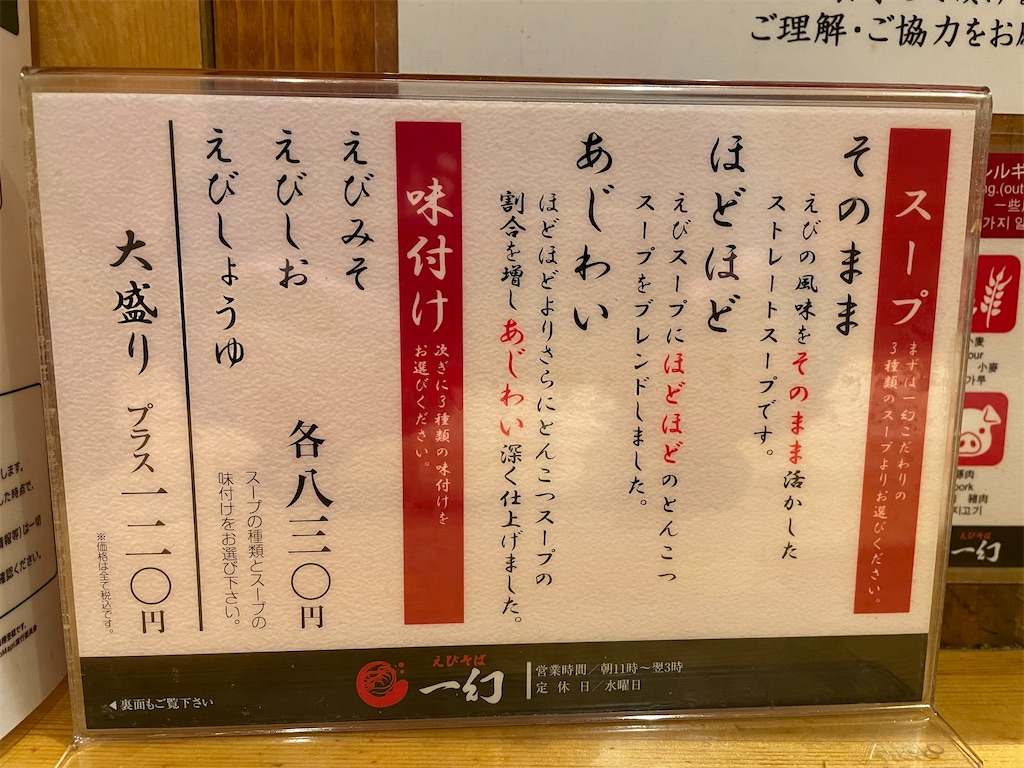 ご理解・ご協力をお
スープ
まずは一幻こだわりの
3種類のスープよりお選びください。
そのまま
えびの風味をそのまま活かした
ストレートスープです。
ほどほど
えびスープにほどほどのとんこつ
スープをブレンドしました。
あじわい
ほどほどよりさらにとんこつスープの
割合を増しあじわい深く仕上げました。
味付け
次ぎに3種類の味付けを
お選びください。
えびみそ
えびしお
えびしょうゆ
各八三〇円
スープの種類とスープの
味付けをお選び下さい。
大盛り プラス一一〇円
※価格は全て税込です。
◀裏面もご覧下さい
えびそば
一幻
営業時間／朝11時～翌3時
定休日／水曜日
小麦
小麥
가루
豚肉
pork
豬肉
지고기
えびそば
一幻
します。
した時点で、
情報等)は一切
確認ください。